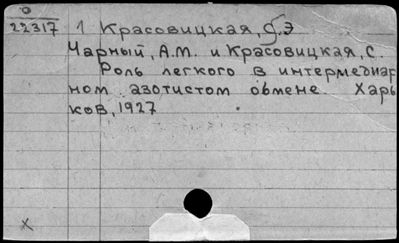 О
22317 1 Красовицкая, С.Э
Чарный, А.М. и Красовицкая, С.
Роль легкого в интермедиар
ном азотистом обмене. Харь
ков, 1927
X